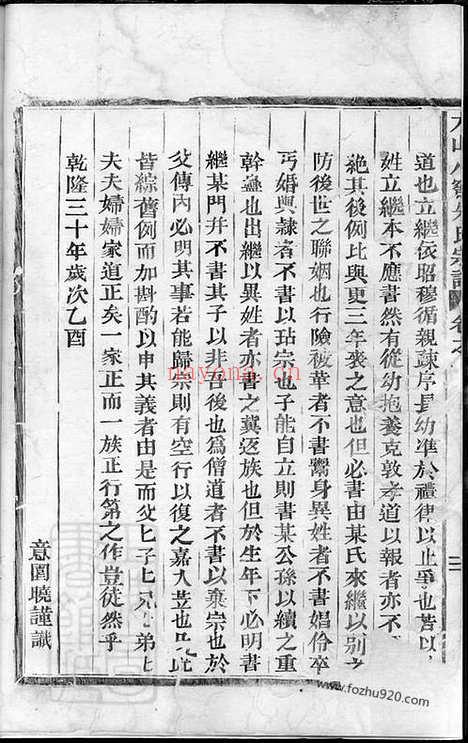 道也立繼依昭穆循親疎序長幼準於禮律以止爭也若以
姓立繼本不應書然有從幼抱養克敦孝道以報者亦不
絶其後例比與更三年喪之意也但必書由某氏來繼以别之
防後世之聯姻也行險被革者不書鬻身異姓者不書娼伶卒
丐婚與隷者不書以玷宗也子能自立則書某公孫以續之重
幹蠱也出繼以異姓者亦書之冀返族也但於生年下必明書
繼某門并不書其子以非吾後也爲僧道者不書以棄宗也於
父傳内必明其事若能歸宗則有空行以復之嘉人並也凡此
皆綜舊例而加斟酌以申其義者由是而父匕子匕兄匕弟匕
夫夫婦婦家道正矣一家正而一族正行第之作豈徒然乎
乾隆三十年歲次乙酉
意園曉謹識
氏宗譜
卷之
nayona.cn
www.fozhu920.com